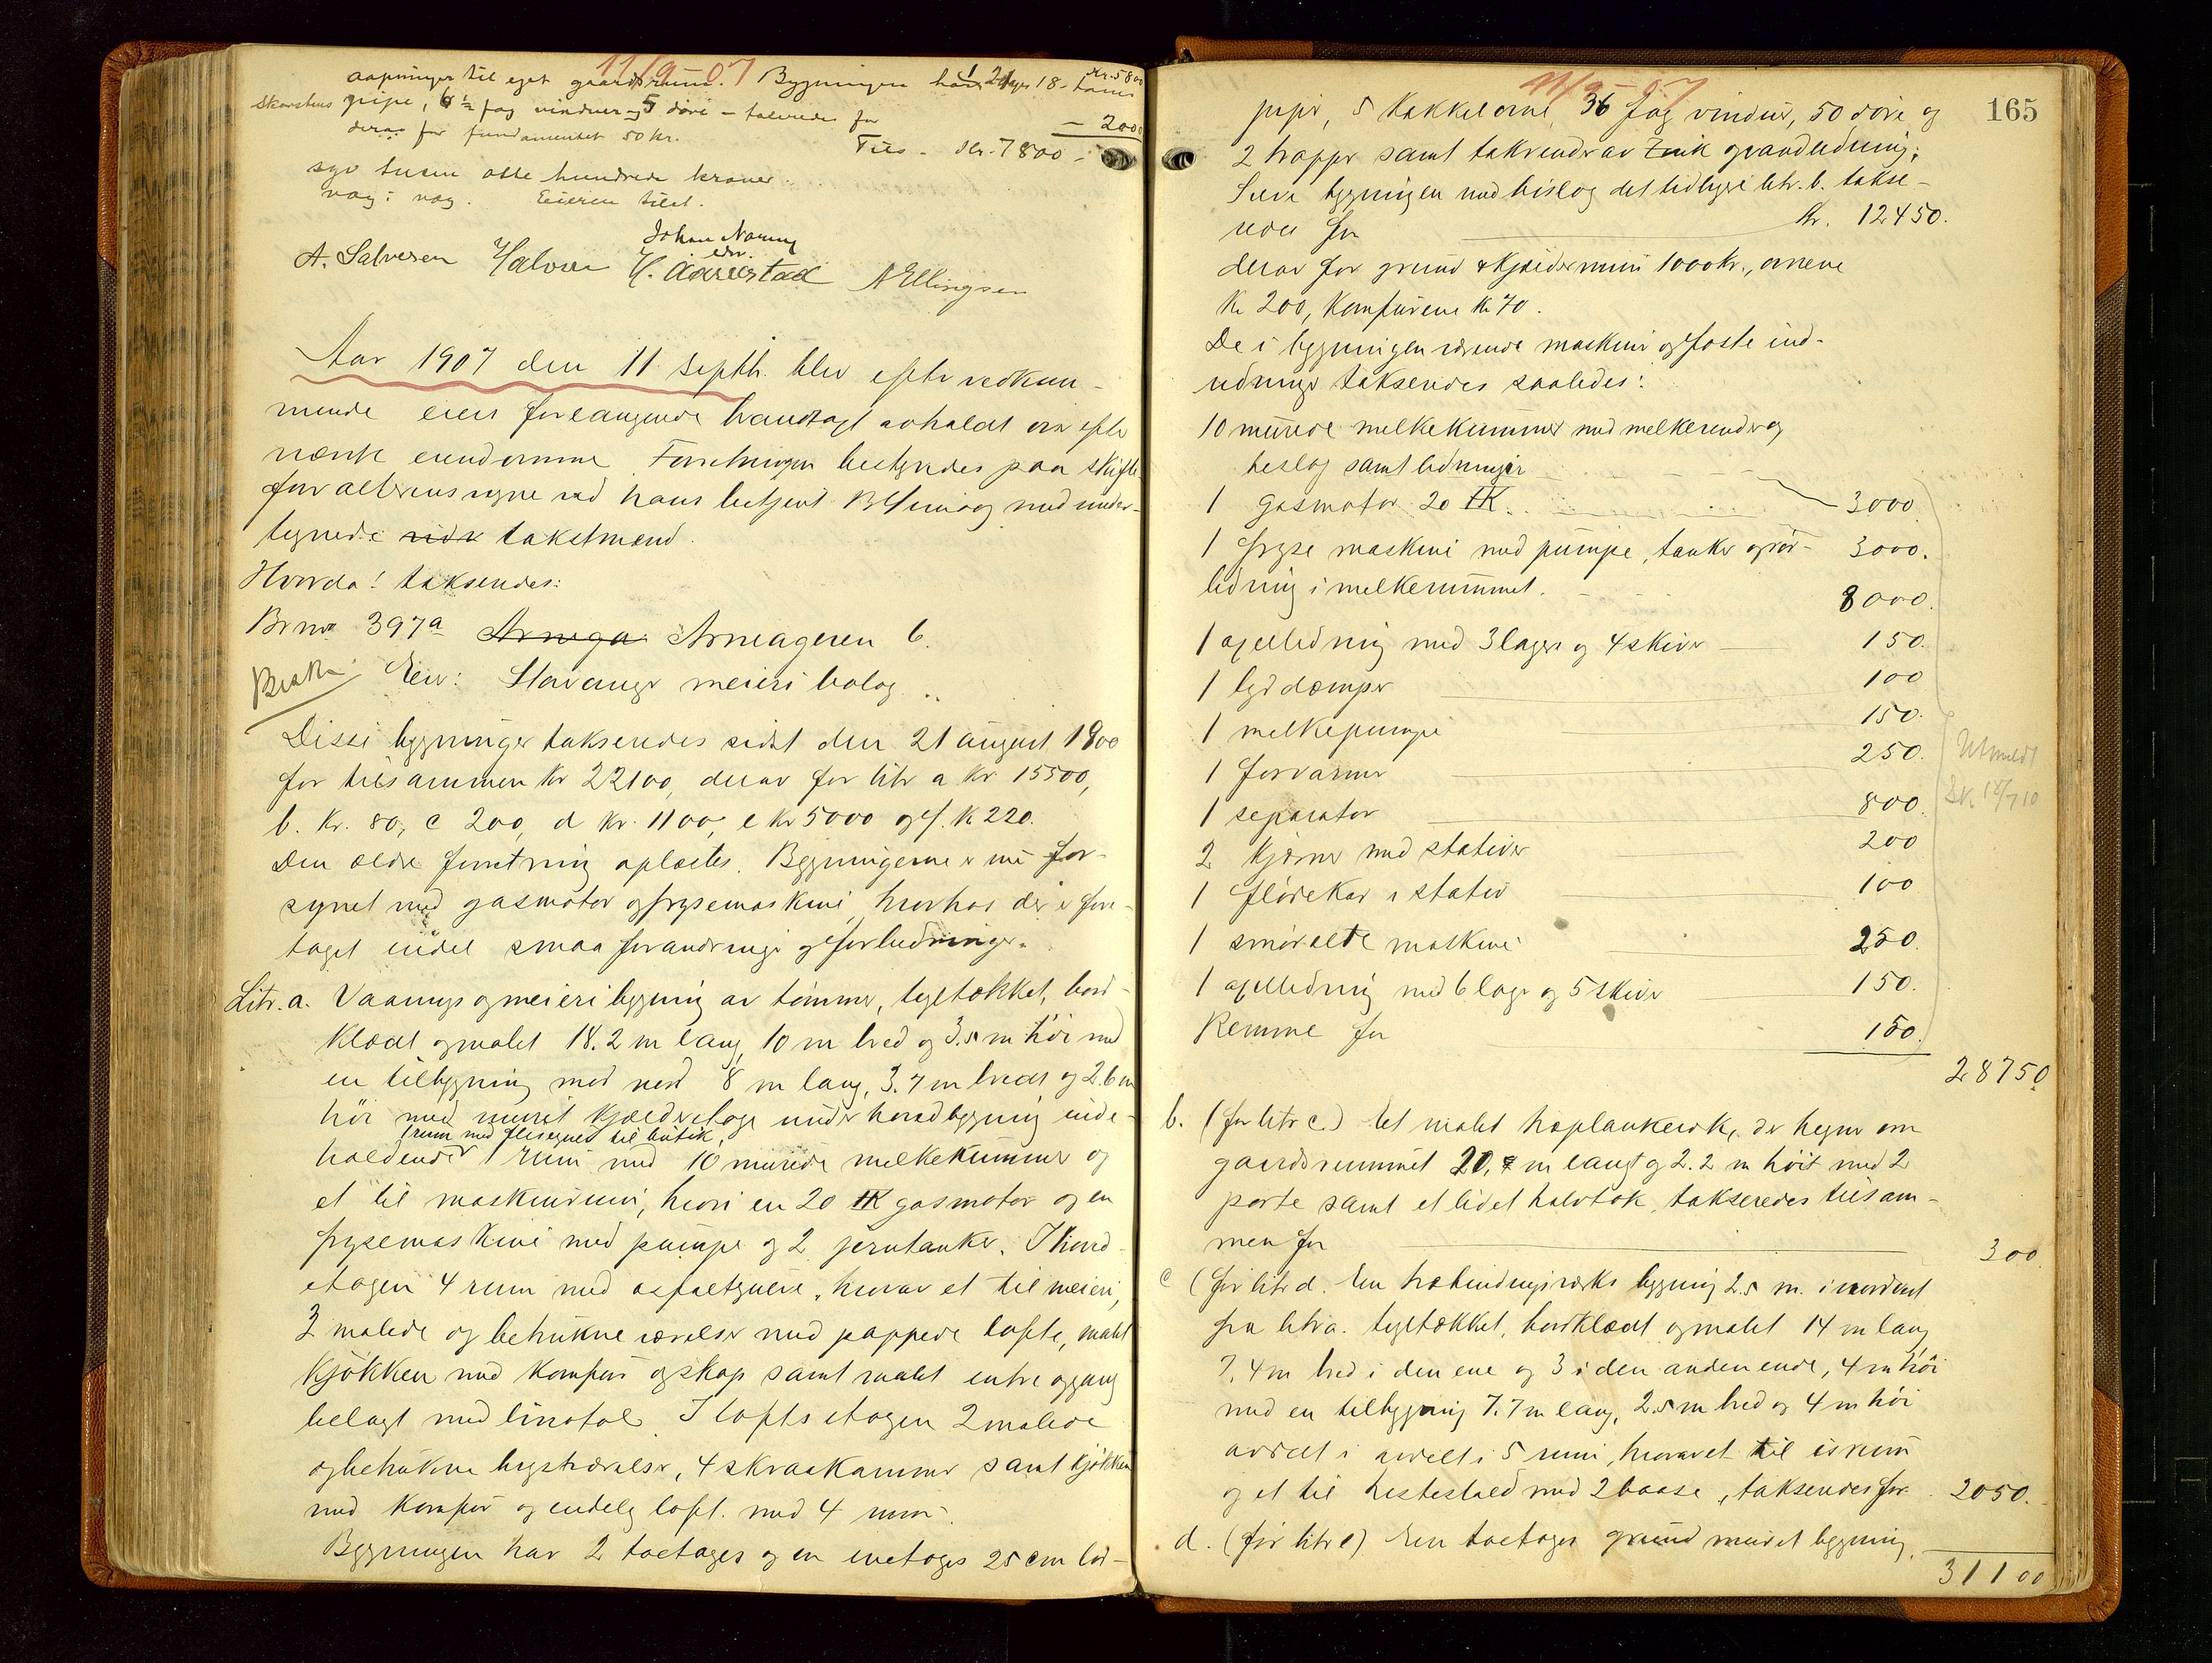 11/9-07
aapninger til eget gaardsrum. Bygningen har 1 2 etages 18-toms
Kr. 5800
skorstens pipe, 6½ fag vinduer og 5 döre - takseredes for
- 2000
derav for fundamentet 50 kr.
Tils. Kr. 7800 -
syv tusen otte hundrede kroner.
væg i væg. Eieren tilst.
Johan Norum
A. Salvesen Halvorsen H. Aarrestad A Ellingsen
Aar 1907 den 11 Septbr. blev efter vedkom-
mende eiers forlangende brandtagt avholdt over efter-
nævnte eiendomme. Forretningen bestyredes paa skifte-
forvalterens vegne ved hans betjent med under-
tegnede takstmænd.
Hvorda! takseredes:
Br no 397a Arneageren 6.
Brakn
Eier: Stavanger meieribolag
Disse bygninger takseredes sidst den 21 august 1900
for tilsammen Kr 22100, derav for litr a Kr 15500,
b. Kr. 80, c 200, d Kr. 1100, e Kr 5000 og f. K 220.
Den ældre forretning oplæstes. Bygningerne er nu for-
synet med gasmotor og frysemaskine, hvorhos der er fore-
taget endel smaa forandringer og forbedringer.
Litr. a. Vaanings og meieribygning av tömmer, tegltækket, bord-
klædt og malet 18.2 m lang, 10 m bred og 3.5 m höi med
en tilbygning mod nord 8 m lang, 3.7 m bredt og 2.6 m
höi med muret kjælderetage under hovedbygning inde-
1 rum med flisegulv til butik,
holdende 1 rum med 10 murede melkekummer og
et til maskinrum, hvori en 20 HK gasmotor og en
frysemaskine med pumpe og 2 jerntanker. I hoved-
etagen 4 rum med asfaltgulve, hvorav et til meieri,
3 malede og betrukne værelser med pappede lofte, malet
kjökken med komfur og skap samt malet entre og gang
belagt med linotol. I loftsetagen 2 malede
og betrukne kvistværelser, 4 skraakammer samt kjökken
med komfur og endelig loft med 4 rum.
Bygningen har 2 toetages og en enetages 25 cm lös-
11/9-07
165
pipe, 5 kakkelovne, 36 fag vinduer, 50 döre og
2 trapper samt takrender av Zink og vandledning;
Selve bygningen med bislag det tidligere litr. b. takse-
redes for Kr. 12450.
derav for grund & kjælderrum 1000 kr., ovnene
Kr 200, Komfurene Kr 70.
De i bygningen værende maskiner og faste ind-
redninger takseredes saaledes:
10 murede melkekummer med melkerender og
beslag samt ledninger 3000
1 gasmotor 20 HK. 3000.
1 fryse maskine med pumpe, tanker og rör-
ledning i melkerummet. 8000.
1 axelledning med 3 lagre og 4 skiver 150.
1 lyddæmper 100
1 melkepumpe 150.
1 forvarmer 250.
1 separator 800.
2 kjærner med stativer 200
1 flödekar i stativ 100
1 smörælte maskine 250.
1 axelledning med 6 lager og 5 skiver 150.
Remme for 150.
Utmeldt
Sk. 18/7 10
28750.
b. (för litr c.) Et malet træplankeværk, der hegner om
gaardsrummet 20, m langt og 2.2 m höit med 2
porte samt et lidet halvtak, takseredes tilsam-
men for 300.
c (för litr d. En træbindingsværks bygning 2.5 m. i nordvest
fra litr a. tegltækket, bordklædt og malet 14 m lang
7.4 m bred i den ene og 3 i den anden ende, 4 m höi
med en tilbygning 7.7 m lang, 2.5 m bred og 4 m höi
avdelt i avdelt i 5 rum, hvorav et til isrum
og et til hestestald med 2 baase, takseredes for 2050.
d. (för litr e) En toetages grundmuret bygning,
31100